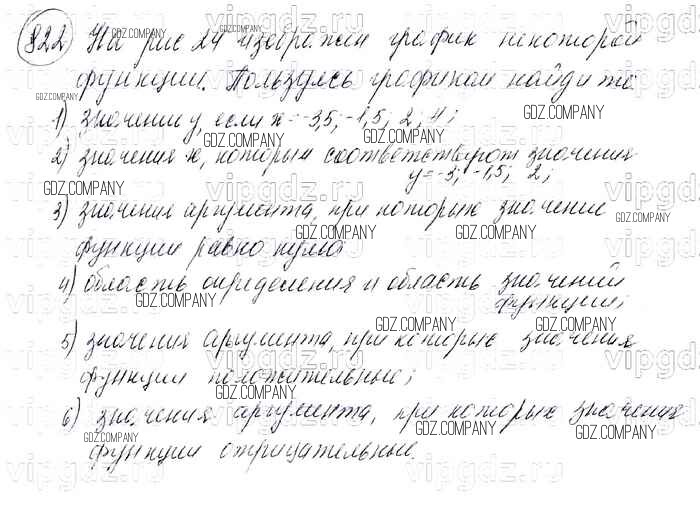 822) На рис 24 изображен график некоторой
функции. Пользуясь графиком найдите
1) значении у, если х = -3,5; -1,5; 2; 4;
2) значения х, которым соответствуют значения
у = -3; -1,5; 2;
3) значения аргумента, при которых значение
функции равно нулю
4) область определения и область значений
функции;
5) значения аргумента, при которых значения
функции положительные;
6) значения аргумента, при которых значения
функции отрицательные.
GDZ.COMPANY
vipgdz.ru